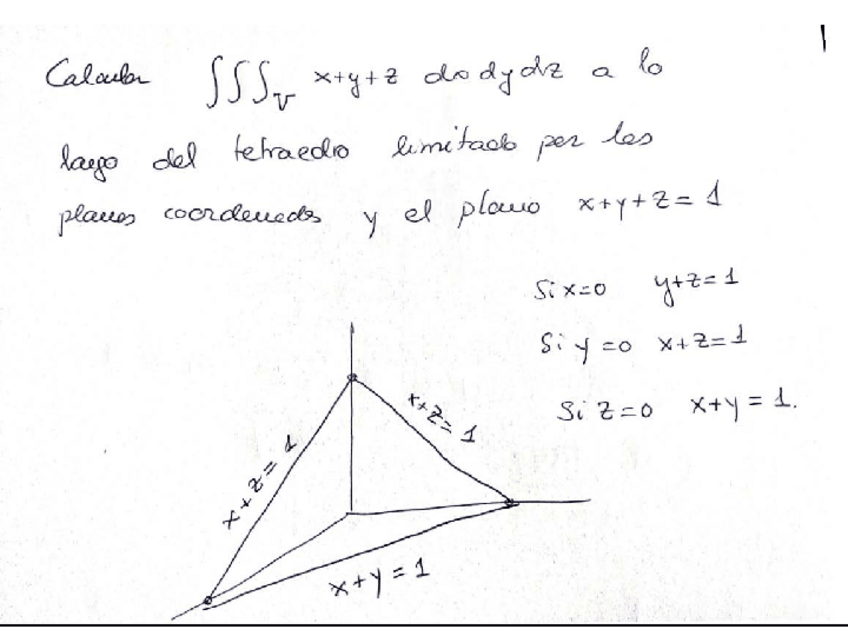 1
Calcular ∫∫∫_V x+y+z dx dy dz a lo
largo del tetraedro limitado por los
planos coordenados y el plano x+y+z=1
Si x=0 y+z=1
Si y=0 x+z=1
Si z=0 x+y=1.
x+z=1
x+z=1
x+y=1